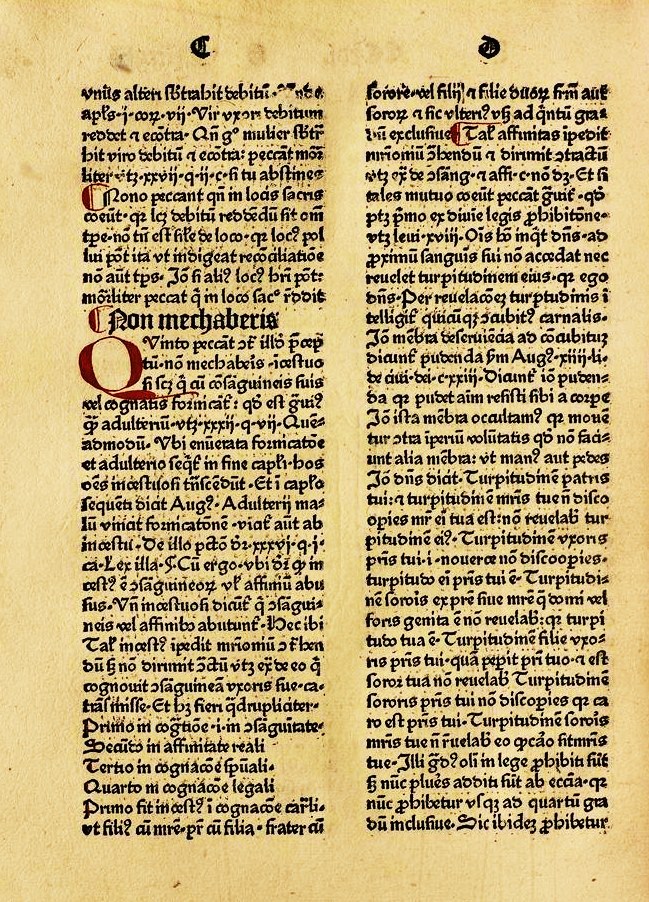 C
vnus alteri sb̄trahit debitū
apl̓s·j·coꝝ·vij·Vir vxori debitum
reddet ⁊ ecōtra·Qn̄ gͦ mulier sb̄tr̄
hit viro debitū ⁊ ecōtra: peccāt moꝛ
liter·vtꝫ·xxvij·q·ij·c·si tu abstines
Nono peccant qn̄ in locis sacris
coeūt·qꝛ lcꝫ debitū reddēdū sit om̄
tpe·nō tn̄ est sil̓e de loco·qꝛ locꝰ pol
lui pōt ita vt indigeat recōciliatiōe
nō aūt tps·Jō si aliꝰ locꝰ hr̄i pōt:
moꝛliter peccat q̄ in loco sacͦ r̄ddit
Non mechaberis
QVinto peccāt ꝯͭ illō p̄cep
tū·nō mechabeis·īcestuo
si scꝫ q̄ cū cōsaguineis suis
vel cognatis foꝛnicāt̄: qd̓ est ḡuiꝰ
qꝫ adulteriū·vtꝫ·xxxij·q·vij·Quē⸗
admodū·Vbi enūerata foꝛnicatōe
et adulterio seqt̄ in fine capl̓i·hos
oēs incestuosi trn̄scēdūt·Et ī capl̓o
sequēti dicit Augꝰ·Adulterij ma⸗
lū vincit foꝛnicatōnē·vicāt̄ aūt ab
incestu·De illo pctō dꝛ·xxxvj·q·j·
ca·Lex illa·§·Cū ergo·vbi dꝛ qꝫ in
cestꝰ ē ꝯsāguineoꝝ vl̓ affiniū abu
sus·Vn̄ incestuosi dicūt̄ q̄ ꝯsāgui⸗
neis vel affinibꝰ abutunt̄·Nec ibi
Tal̓ incestꝰ īpedit mr̄imoniū ꝯtͬhen
dū sꝫ nō dirimit ꝯctū vtꝫ ex̄ de eo q̄
cognouit ꝯsāguineā vxoris sue·ca·
trāsmisse·Et hꝫ fieri q̄drupliciter·
Primo in cogtōe·i·in ꝯsāguitate·
Secūdo in affinitate reali
Tertio in cognacōe spūali·
Quarto in cognacōe legali
Primo fit incestꝰ ī cognacōe car̄li·
vt filiꝰ cū mr̄e·pr̄ cū filia·frater cū
D
soꝛoꝛe·vel filij ⁊ filie duoꝝ fr̄m aut̓
soꝛoꝝ ⁊ sic vlteriꝰ vsꝫ ad q̄ntū gra⸗
dū exclusiue Tal̓ affinitas īpedit
mr̄imoniū ꝯhendū ⁊ dirimit ꝯtractū
vtꝫ ex̄ de ꝯsāg·⁊ affi·c·nō dꝫ·Et si
tales mutuo coeūt peccāt ḡuit̓·qd̓
ptꝫ p̄mo ex diuīe legis ꝓhibitōne·
vtꝫ leui·xviij·Ois hō inq̄t dn̄s·ad
ꝓximū sanguīs sui nō accedat nec
reuelet turpitudinem eius·qꝛ ego
dn̄s·Per reuelacōeꝫ turptudinis ī
telligit̄ quicūqꝫ ꝯcubitꝰ carnalis·
Jō mēbra deseruiēcia ad cōcubitū
dicunt̄ pudenda ẜm Augꝰ·xiiij·li·
de ciui·dei·c·xxiij·Dicunt̄ iō puden⸗
da qꝛ pudet aīm resisti sibi a coꝛpe
Jō ista mēbra occultamꝰ qꝛ mouē
tur ꝯtra īperiū volūtatis qd̓ nō faci⸗
unt alia mēbra: vt manꝰ aut pedes
Jō dn̄s dicit·Turpitudinē patris
tui: ⁊ turpitudinē mr̄is tue n̄ disco
opies mr̄ ei tua est: nō reuelab̓ tur
pitudinē eiꝰ·Turpitudinē vxoris
pr̄is tui·i·nouerce nō discoopies·
turpitudo ei pr̄is tui ē·Turpitudi⸗
nē soꝛoīs ex pr̄e siue mr̄e q̄ domi vel
foꝛis genita ē nō reuelab̓: qꝛ turpi
tudo tua ē·Turpitudinē filie vxo⸗
ris pr̄is tui·quā pepit pr̄i tuo·⁊ est
soꝛoꝛ tua nō reuelab̓ Turpitudinē
soꝛoris pr̄is tui nō discopies qꝛ ca
ro est pr̄is tui·Turpitudinē soꝛoīs
mr̄is tue n̄ r̄uelab̓ eo qꝫ caͦ sit mr̄is
tue·Illi gͣdꝰ oli in lege ꝓhibiti sūt
sꝫ nūc plu̓es additi sūt ab ecc̄ia·qꝛ
nūc ꝓhibetur vsqꝫ ad quartū gra
dū inclusiue·Sic ibidē ꝓhibetur